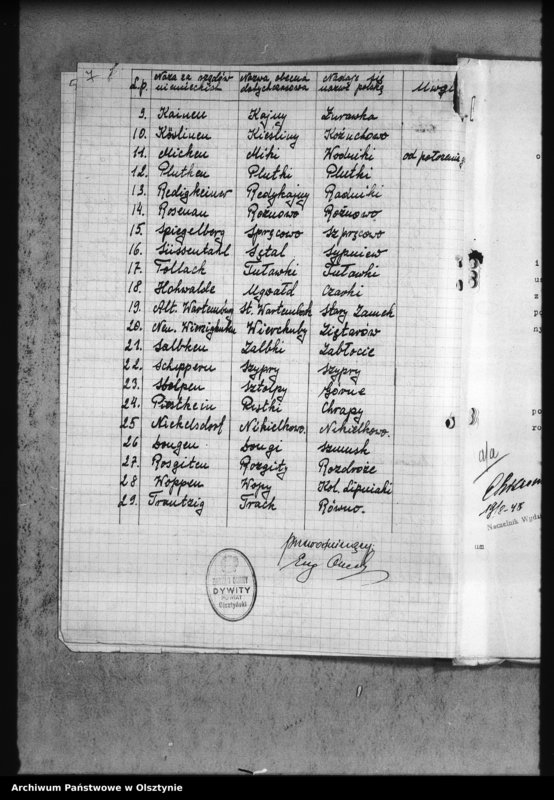 7
L.p. Nazwa za rządów niemieckich Nazwa obecna dotychczasowa Nadaje się nazwę polską Uwagi
9. Kainen Kajny Żurawka
10. Köslinen Kieśliny Kożuchowo
11. Micken Miki Wodniki od położenia
12. Plutken Plutki Plutki
13. Redigkeiner Redykajny Radniki
14. Rosenau Rożnowo Rożnowo
15. Spiegelberg Spręcowo Szpręcowo
16. Süssenthal Sętal
17. Tollack Tuławki Tuławki
18. Hohwalde Ugwałd Czarki
19. Alt. Wartenburg St. Wartembork Stary Zamek
20. Neu. Wierzighuben Wierchuby Ziętarów
21. Salbken Zalbki Zabłocie
22. Schippern Szypry Szypry
23. Stolpen Sztolpy
24. Pistki Chrapy
25 Nickelsdorf Nikielkowo. Nikielkowo.
26 Dongen Dongi Szmusk
27. Rosgitten Rozgity Rozdroże
28 Woppen Wopy Kol. Lipniaki
29. Trautzig Track Równo.
Przewodniczący:
ZARZĄD GMINY
DYWITY
POWIAT
Olsztyński
a/a
Naczelnik Wydz
Archiwum Państwowe w Olsztynie